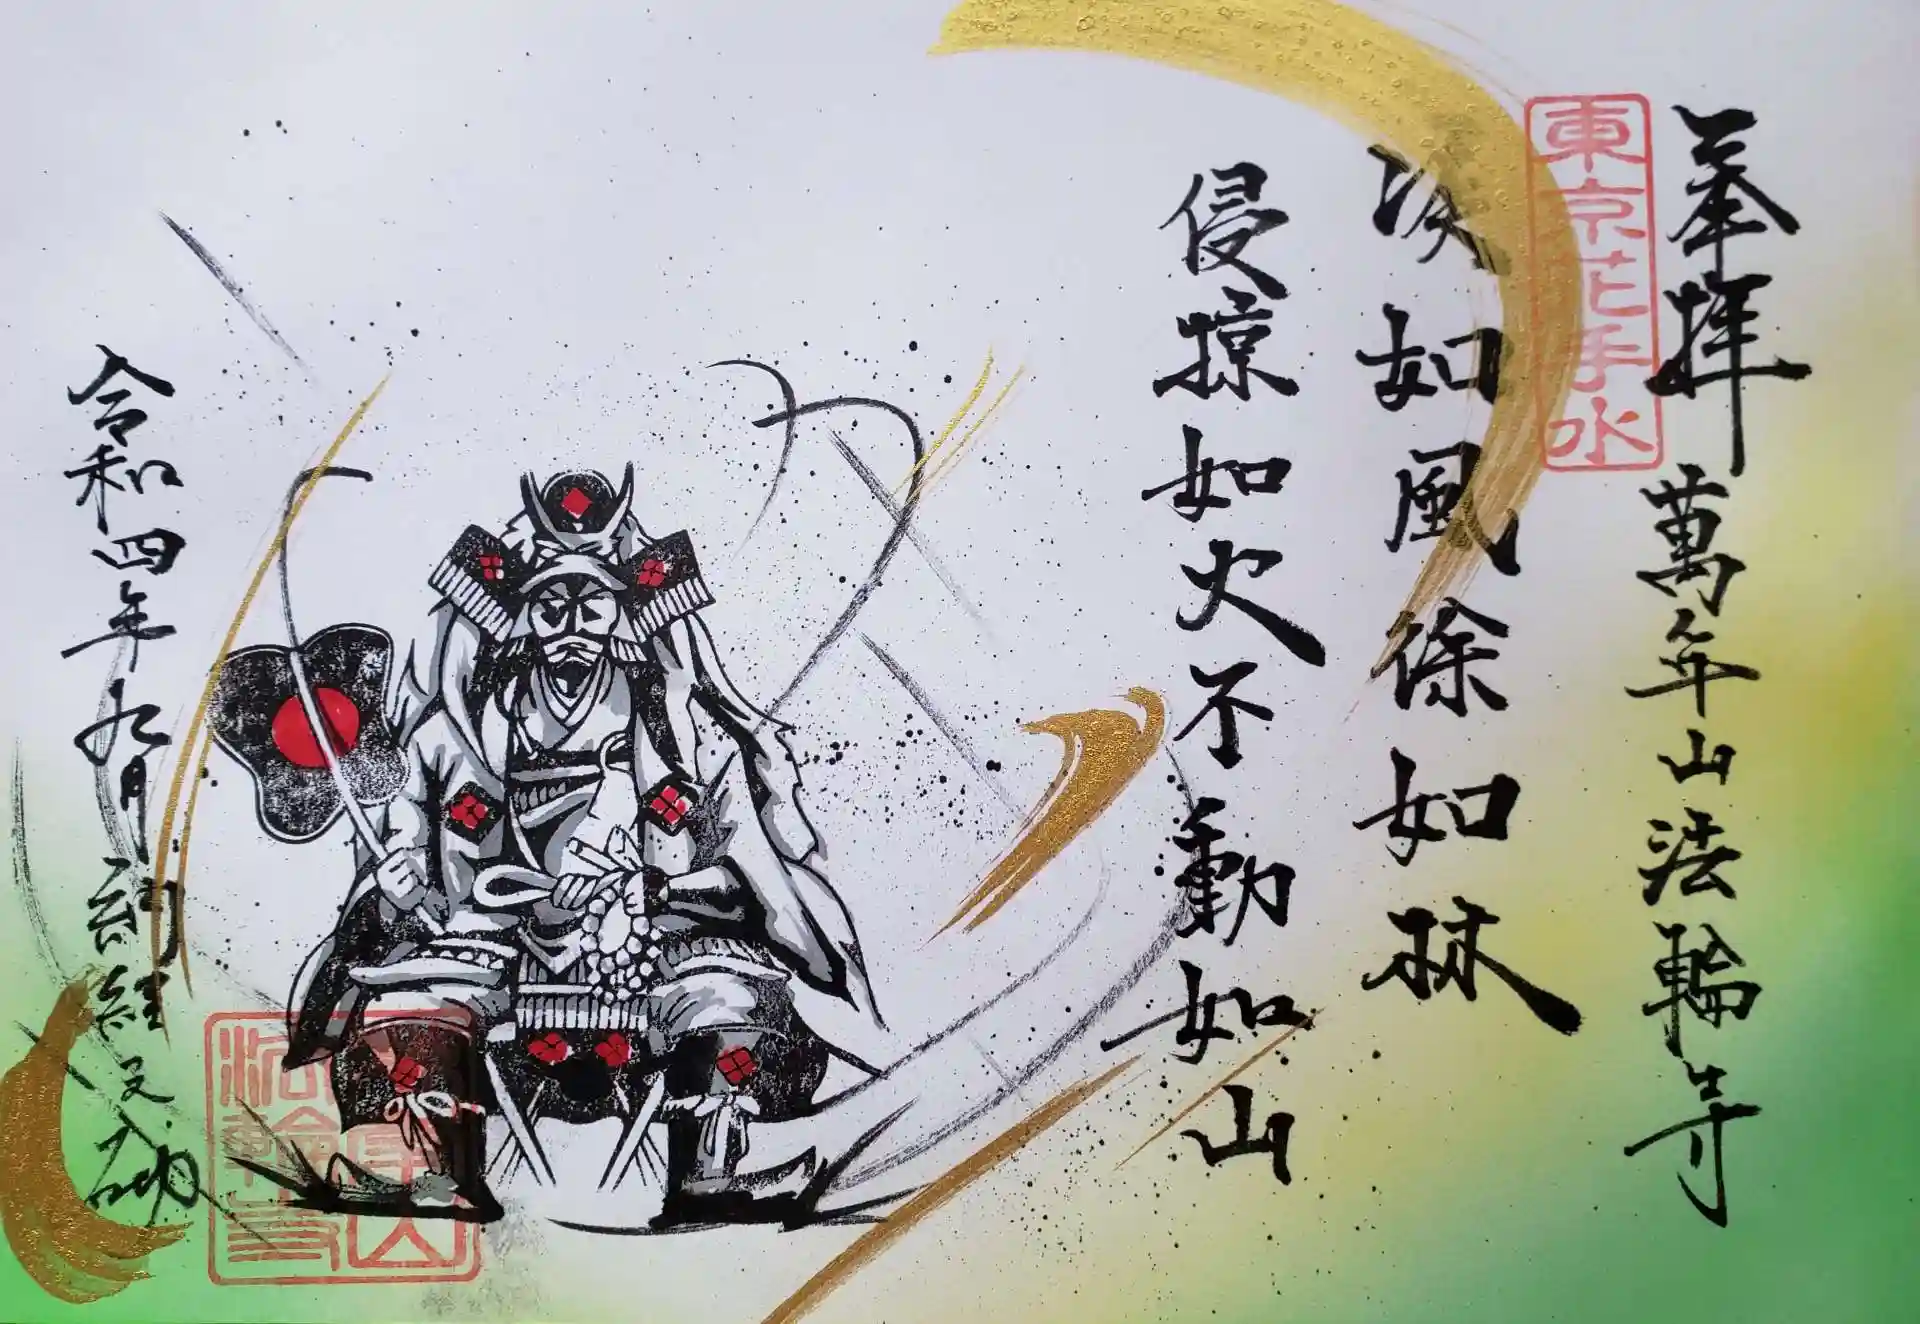 奉拝 萬年山法輪寺
東京花手水
疾如風徐如林
侵掠如火不動如山
令和四年九月
法輪寺